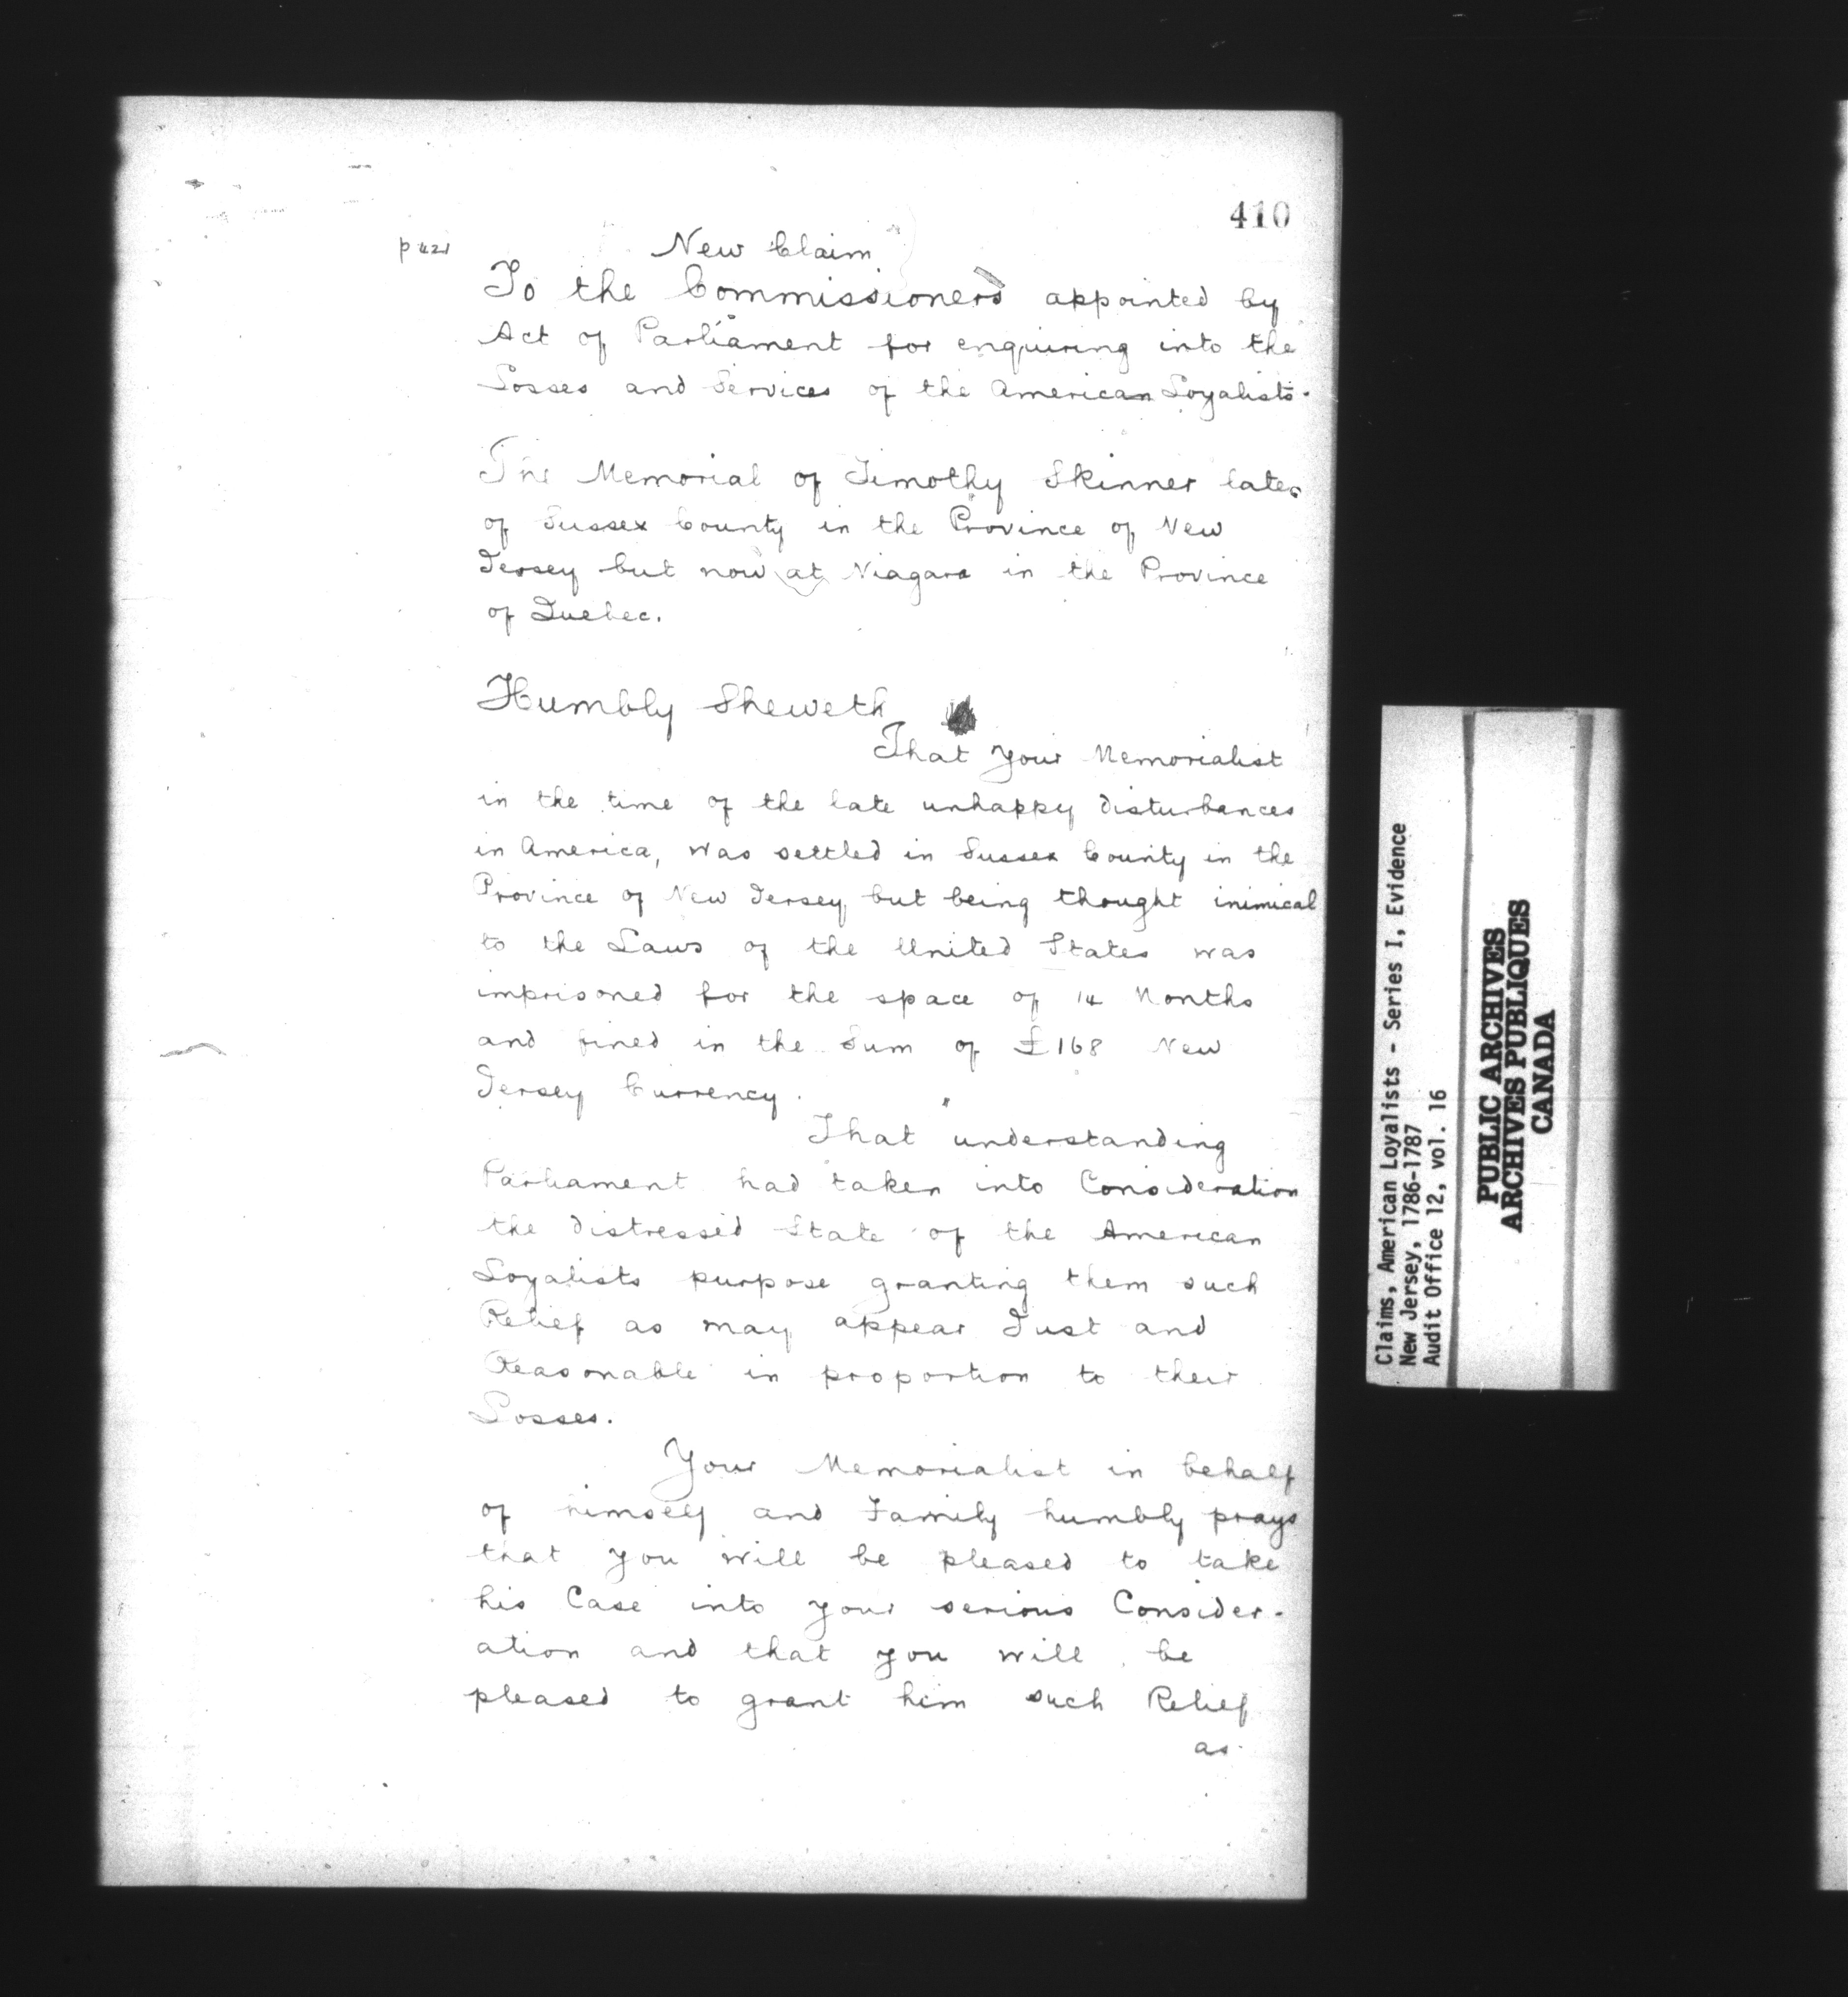 410
p 421
New Claim
To the Commissioners appointed by
Act of Parliament for enquiring into the
Losses and Services of the American Loyalists.
The Memorial of Timothy Skinner late
of Sussex County in the Province of New
Jersey but now at Niagara in the Province
of Quebec.
Humbly Sheweth
That your Memorialist
in the time of the late unhappy disturbances
in America, was settled in Sussex County in the
Province of New Jersey but being thought inimical
to the Laws of the United States was
imprisoned for the space of 14 Months
and fined in the Sum of £168 New
Jersey Currency.
That understanding
Parliament had taken into Consideration
the distressed State of the American
Loyalists purpose granting them such
Relief as may appear Just and
Reasonable in proportion to their
Losses.
Your Memorialist in behalf
of himself and Family humbly prays
that you will be pleased to take
his Case into your serious Consider-
ation and that you will be
pleased to grant him such Relief
as
Claims, American Loyalists - Series I, Evidence
New Jersey, 1786-1787
Audit Office 12, vol. 16
PUBLIC ARCHIVES
ARCHIVES PUBLIQUES
CANADA